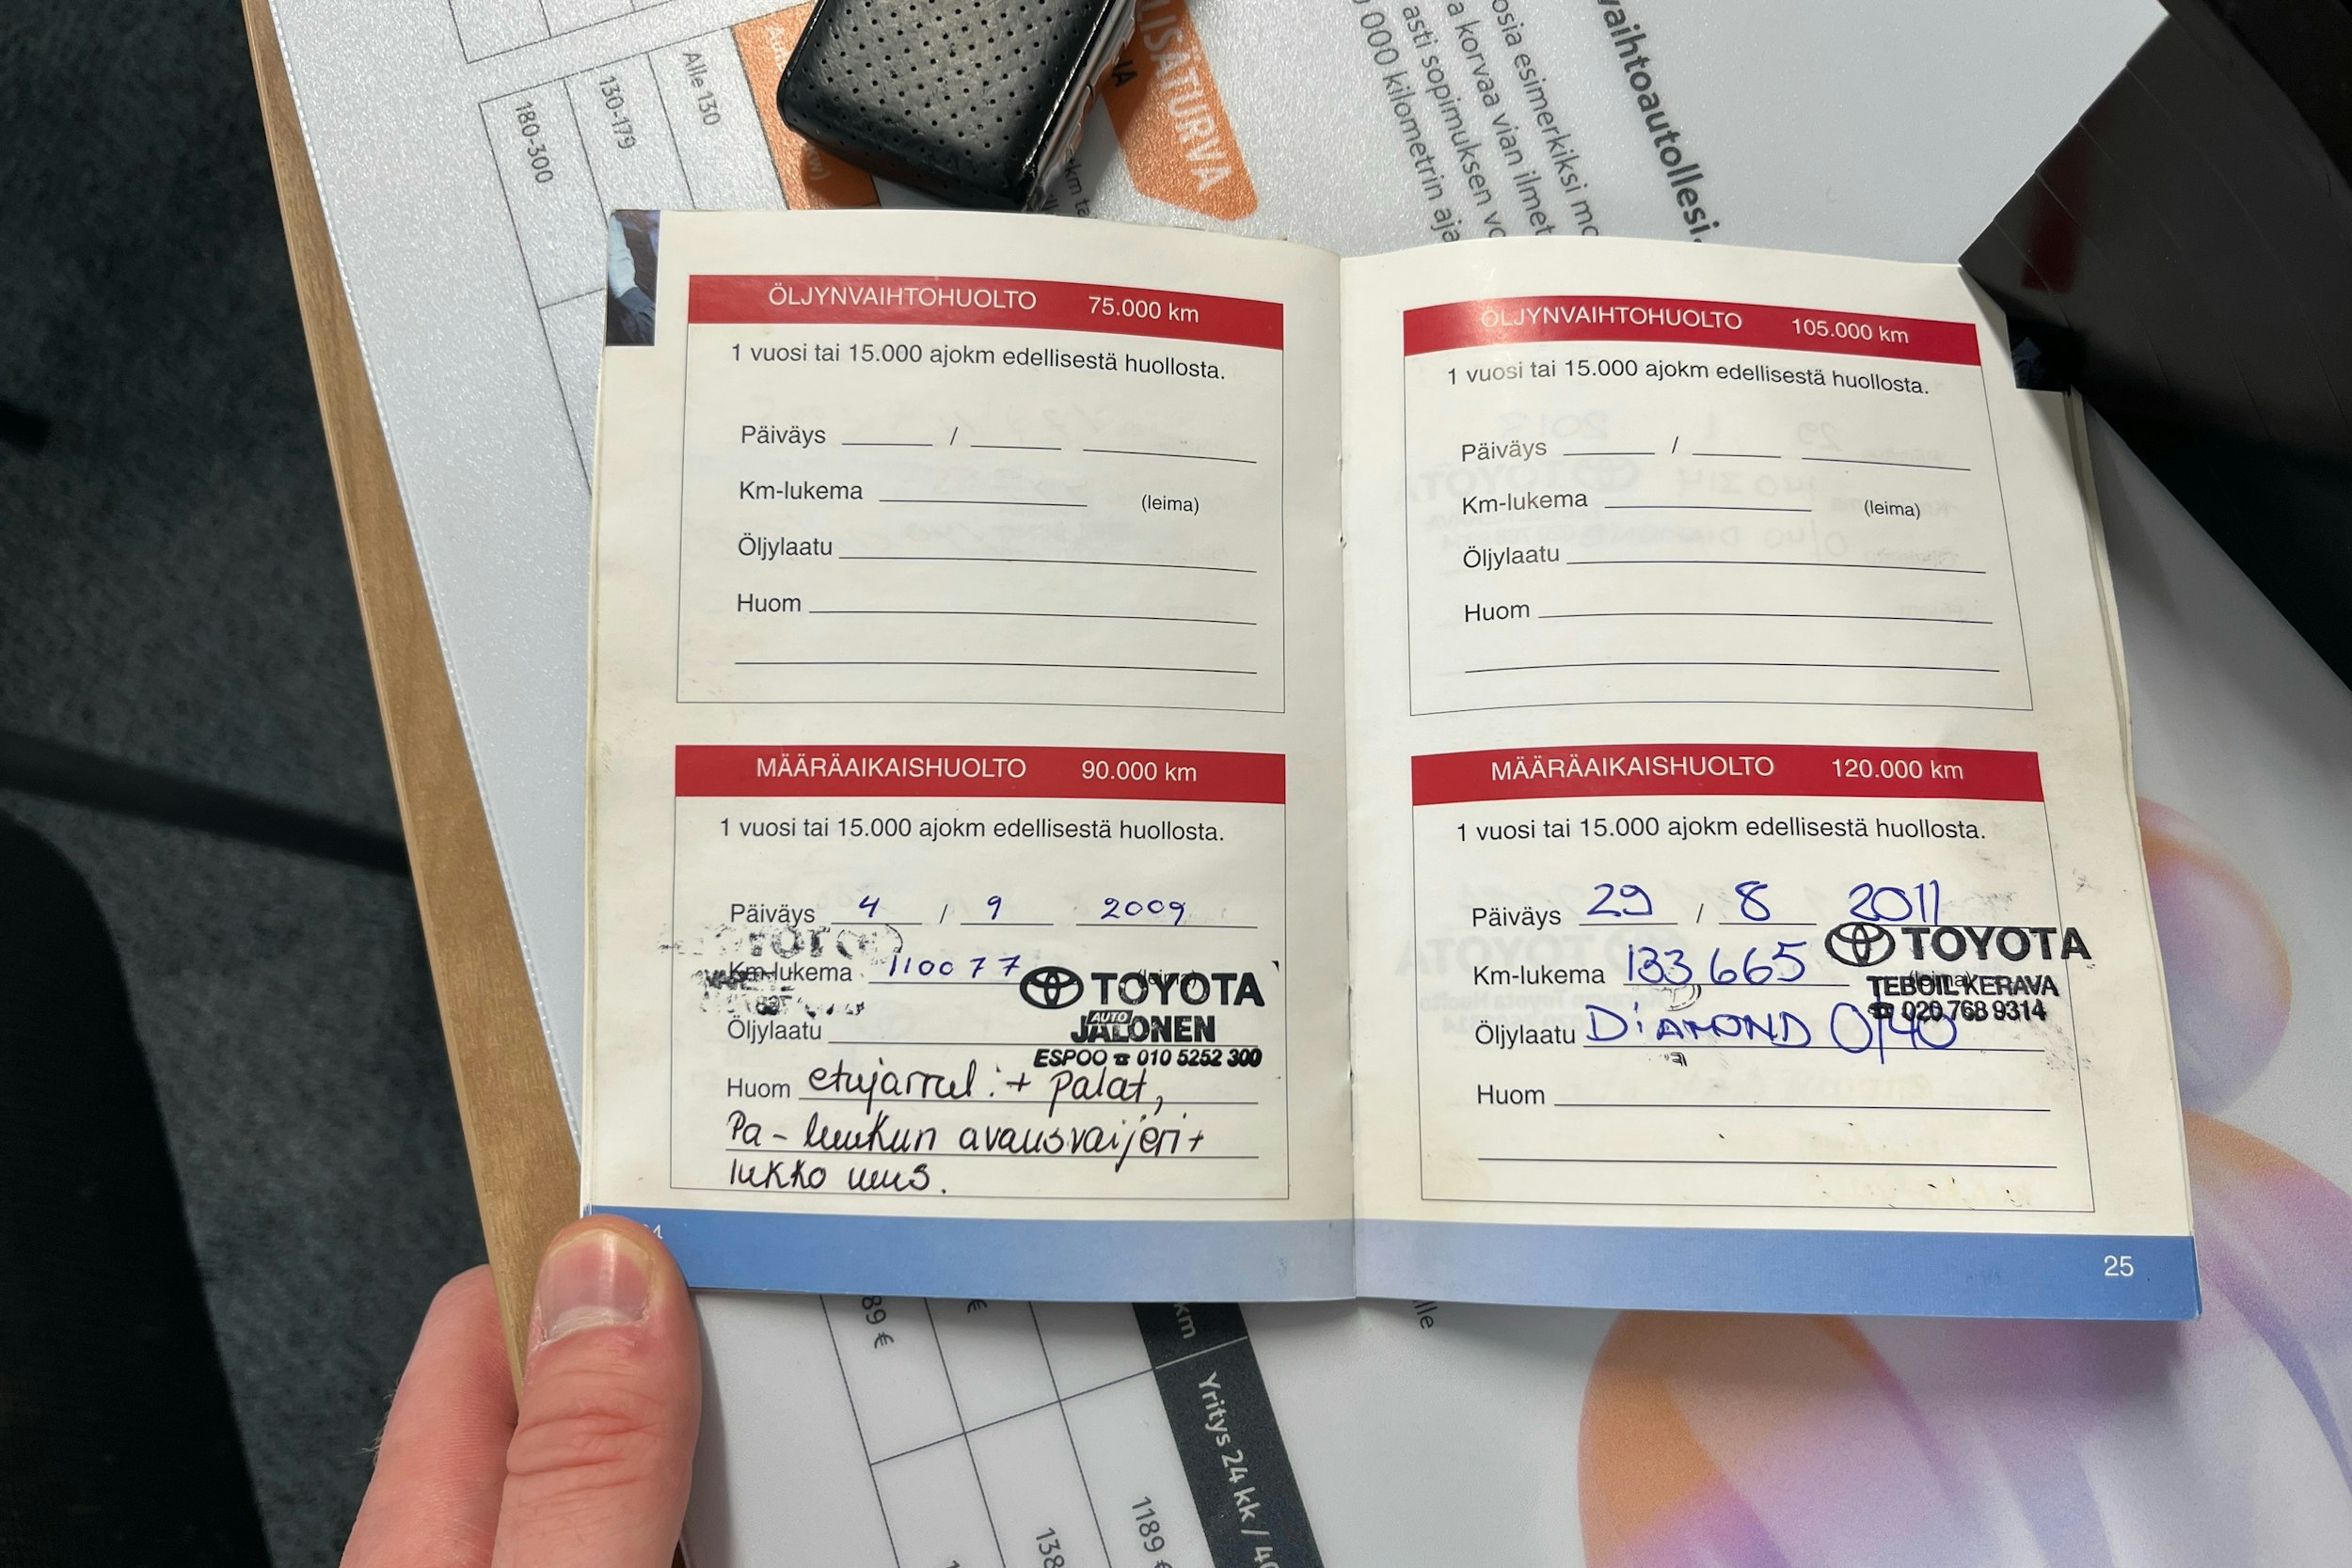 LISÄTURVA
Alle 130
130-179
180-300
vaihtoautollesi.
osia esimerkiksi mo
a korvaa vian ilmet
asti sopimuksen vo
000 kilometrin aja
ÖLJYNVAIHTOHUOLTO 75.000 km
1 vuosi tai 15.000 ajokm edellisestä huollosta.
Päiväys /
Km-lukema (leima)
Öljylaatu
Huom
MÄÄRÄAIKAISHUOLTO 90.000 km
1 vuosi tai 15.000 ajokm edellisestä huollosta.
Päiväys 4 / 9 2009
Km-lukema 110077 (leima)
TOYOTA
AUTO
JALONEN
Öljylaatu
ESPOO ☎ 010 5252 300
Huom etujarrul:+ palat,
Pa-luukun avausvaijeri+
lukko uus.
ÖLJYNVAIHTOHUOLTO 105.000 km
1 vuosi tai 15.000 ajokm edellisestä huollosta.
Päiväys /
Km-lukema (leima)
Öljylaatu
Huom
MÄÄRÄAIKAISHUOLTO 120.000 km
1 vuosi tai 15.000 ajokm edellisestä huollosta.
Päiväys 29 / 8 2011
TOYOTA
Km-lukema 133665 (leima)
TEBOIL KERAVA
☎ 020 768 9314
Öljylaatu DiAMOND 0/40
Huom
25
89 €
km
Yritys 24 kk / 40
1189 €
138